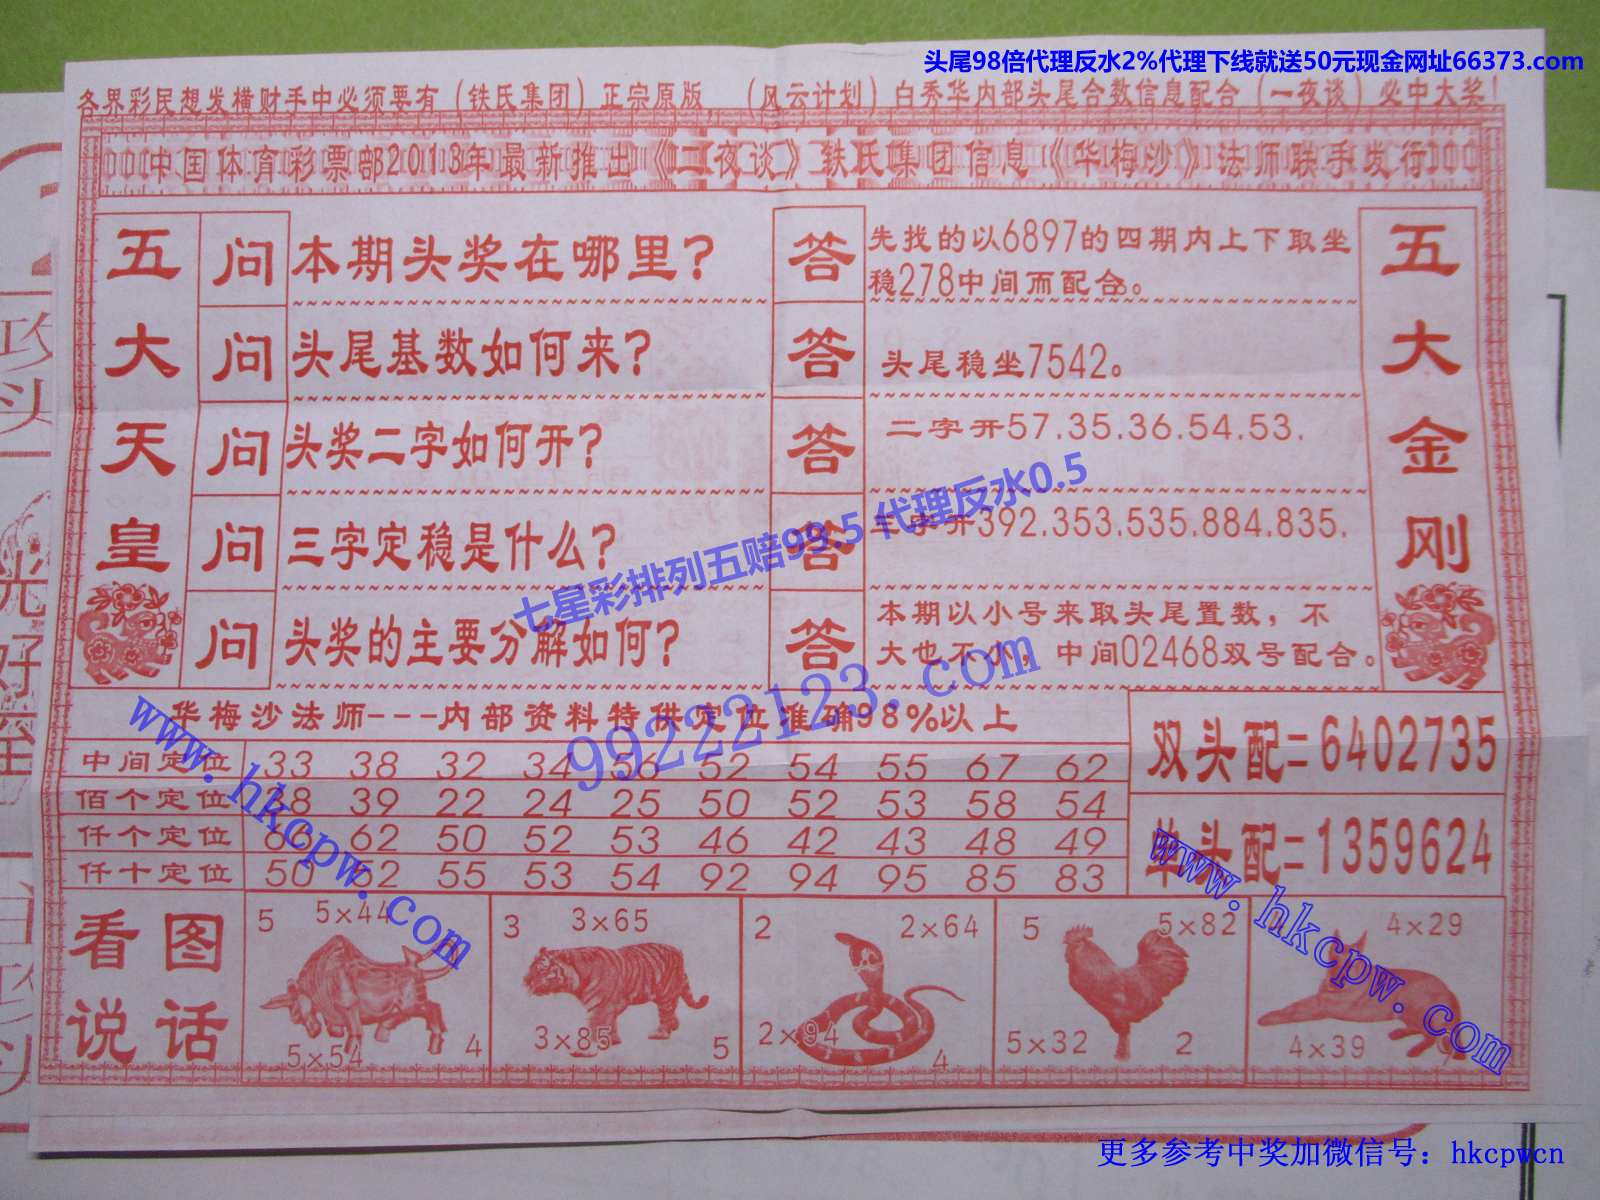 头尾98倍代理反水2%代理下线就送50元现金网址66373.com
各界彩民想发横财手中必须要有（铁氏集团）正宗原版，（风云计划）白秀华内部头尾合数信息配合（一夜谈）必中大奖！
中国体育彩票部2013年最新推出《二夜谈》铁氏集团信息《华梅沙》法师联手发行
五大天皇
问 本期头奖在哪里？
答 先找的以6897的四期内上下取坐
稳278中间而配合。
问 头尾基数如何来？
答 头尾稳坐7542。
问 头奖二字如何开？
答 二字开57.35.36.54.53.
问 三字定稳是什么？
答 三字开392.353.535.884.835.
问 头奖的主要分解如何？
答 本期以小号来取头尾置数，不
大也不小，中间02468双号配合。
五大金刚
七星彩排列五赔99.5代理反水0.5
99222123.com
华梅沙法师---内部资料特供定位准确98%以上
中间定位 33 38 32 34 56 52 54 55 67 62
佰个定位 28 39 22 24 25 50 52 53 58 54
仟个定位 66 62 50 52 53 46 42 43 48 49
仟十定位 50 52 55 53 54 92 94 95 85 83
双头配=6402735
单头配=1359624
www.hkcpw.com
www.hkcpw.com
看图
说话
5 5×44
5×54 4
3 3×65
3×85 5
2 2×64
2×94 4
5 5×82
5×32 2
4×29
4×39
更多参考中奖加微信号：hkcpwcn